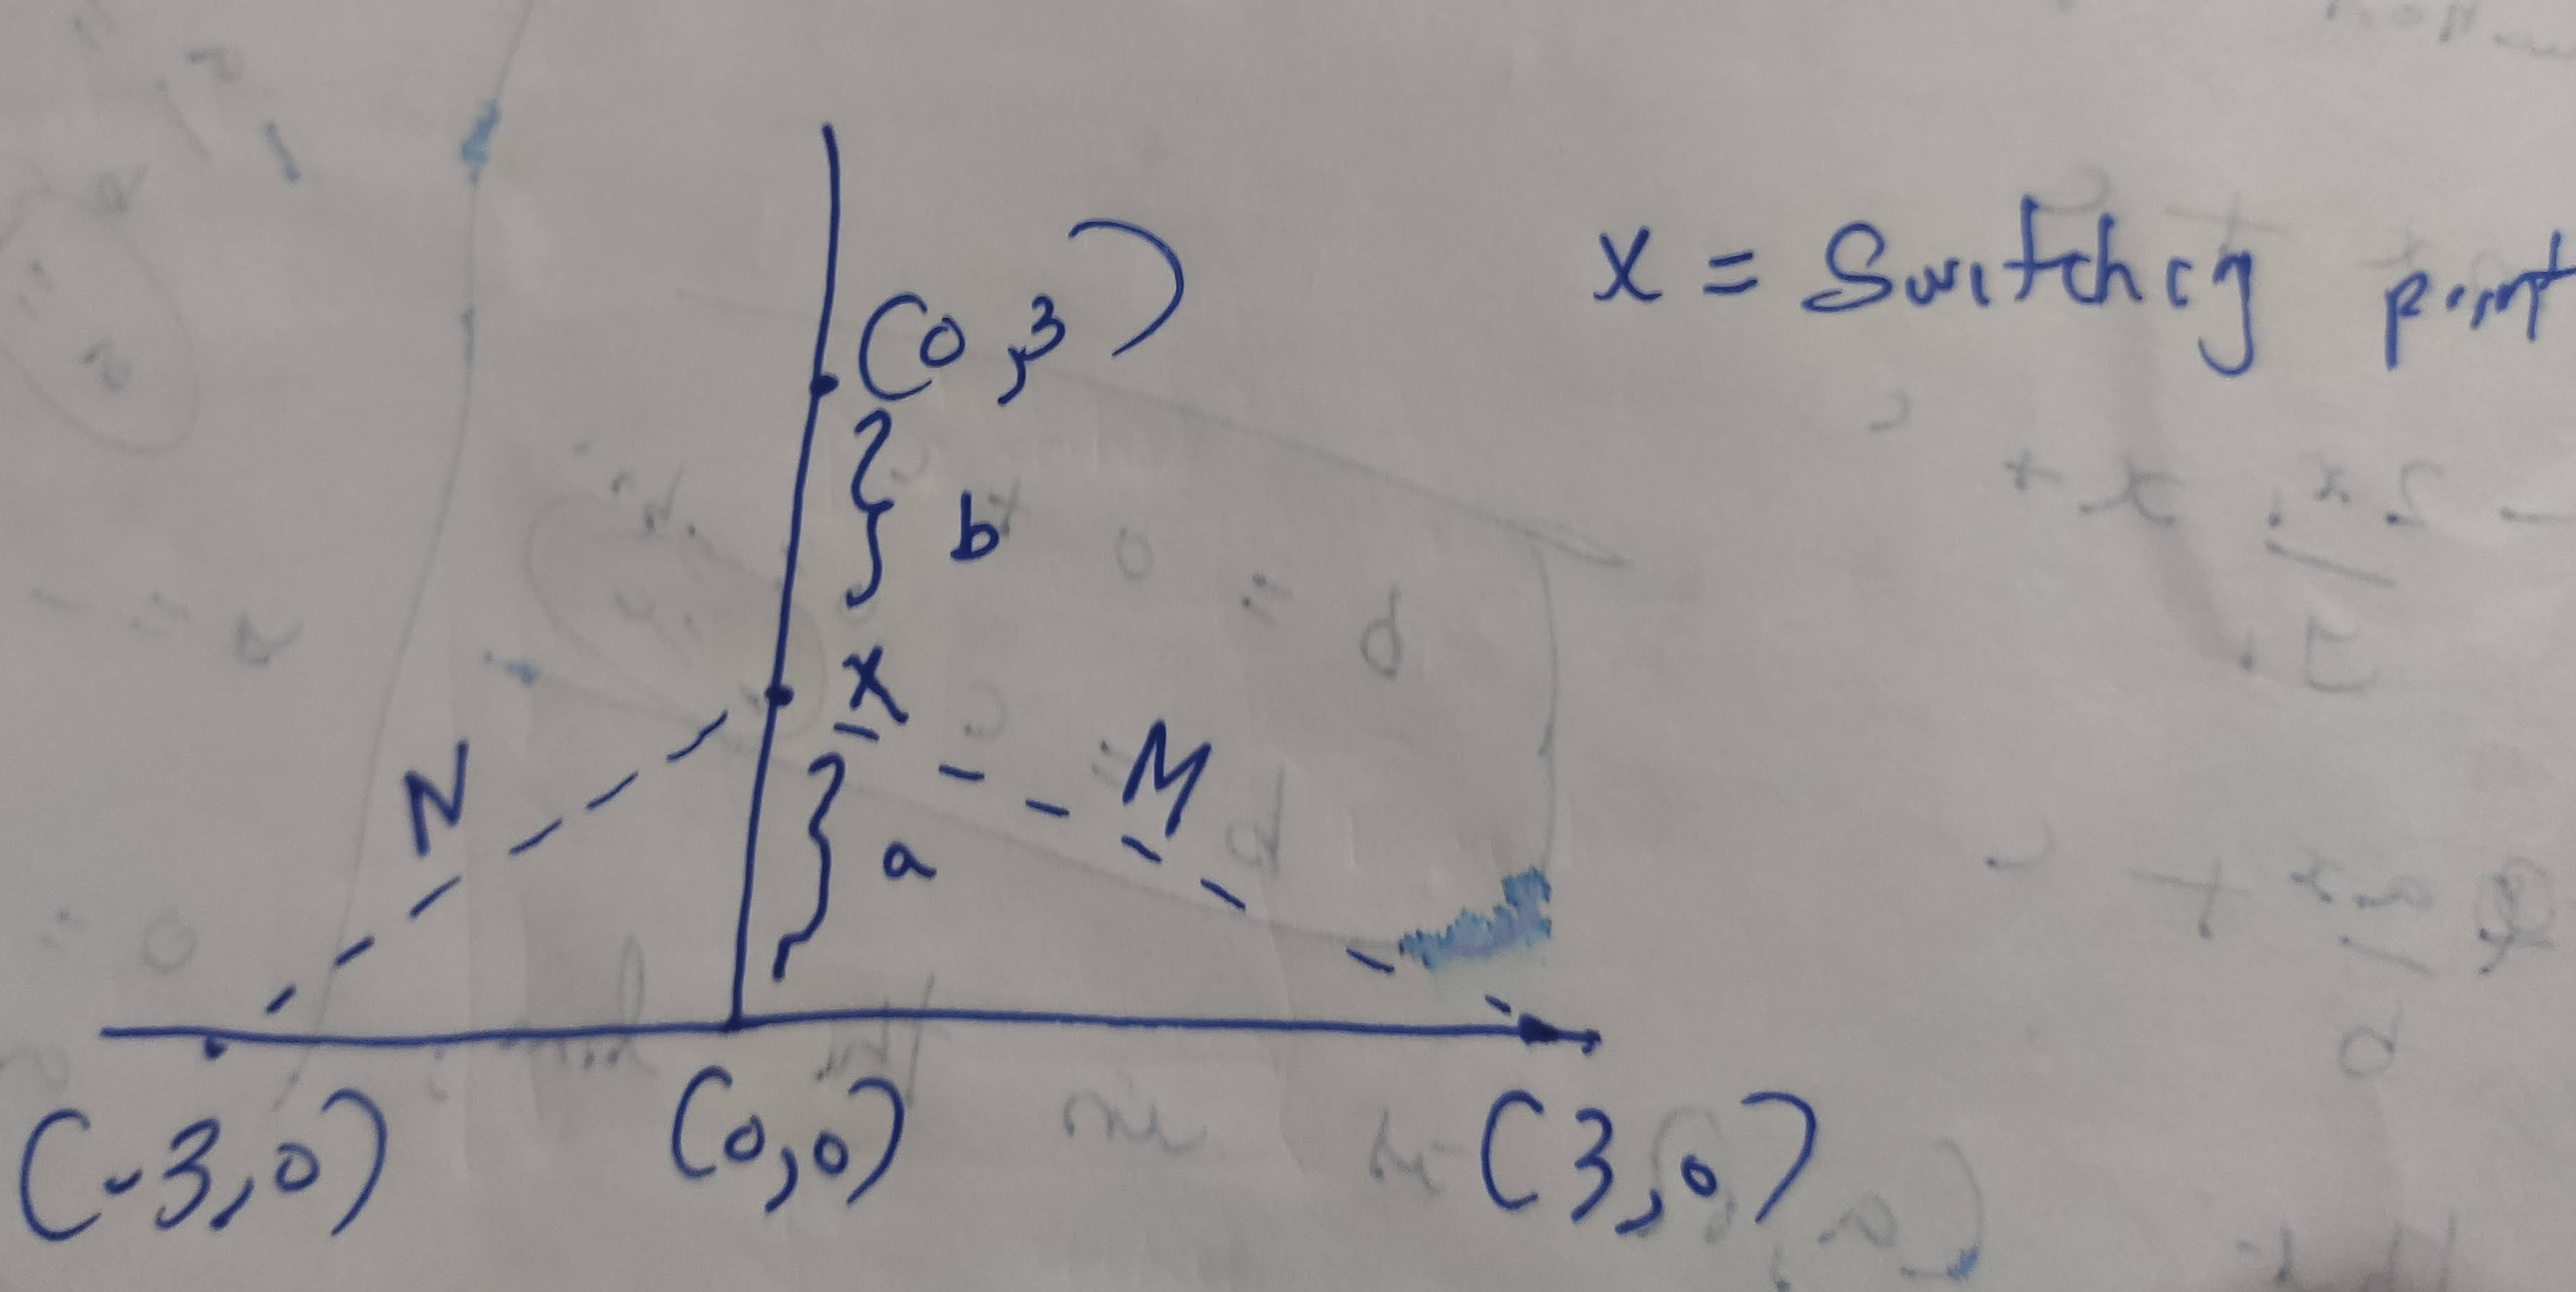 (0,3)
x = Switching point
b
x
N
M
a
(-3,0)
(0,0)
(3,0)